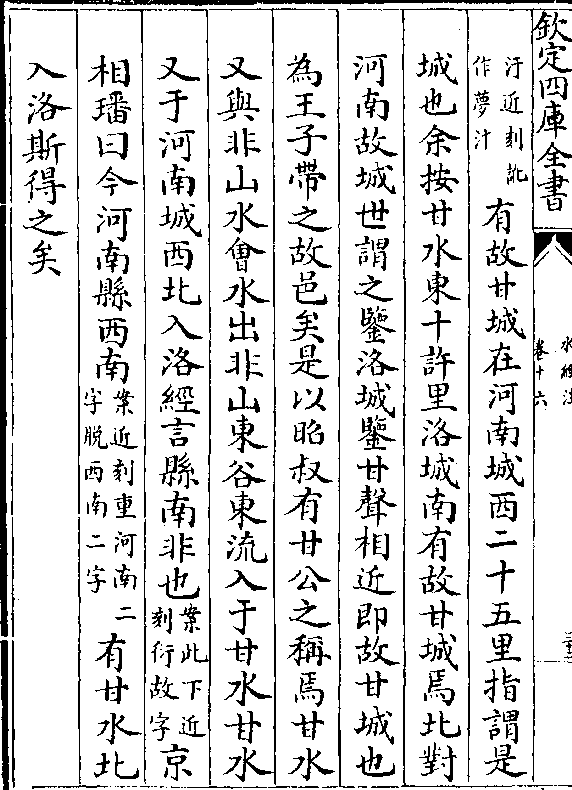 欽定四庫全書
水經注
卷十六
三十三
汙近刻訛
作夢汁
有故甘城在河南城西二十五里指謂是
城也余按甘水東十許里洛城南有故甘城焉北對
河南故城世謂之鑒洛城鑒甘聲相近即故甘城也
為王子帶之故邑矣是以昭叔有甘公之稱焉甘水
又與非山水會水出非山東谷東流入于甘水甘水
又于河南城西北入洛經言縣南非也案此下近刻衍故字京
相璠曰今河南縣西南案近刻重河南二字脫西南二字有甘水北
入洛斯得之矣